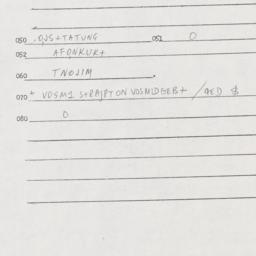 050 .OJS+TATUNG 051 O
052 AFONKUR+
060 TNOJIM
070 + VOSM1 S+RAJPTON VOSMDGEB+ / $
080 O